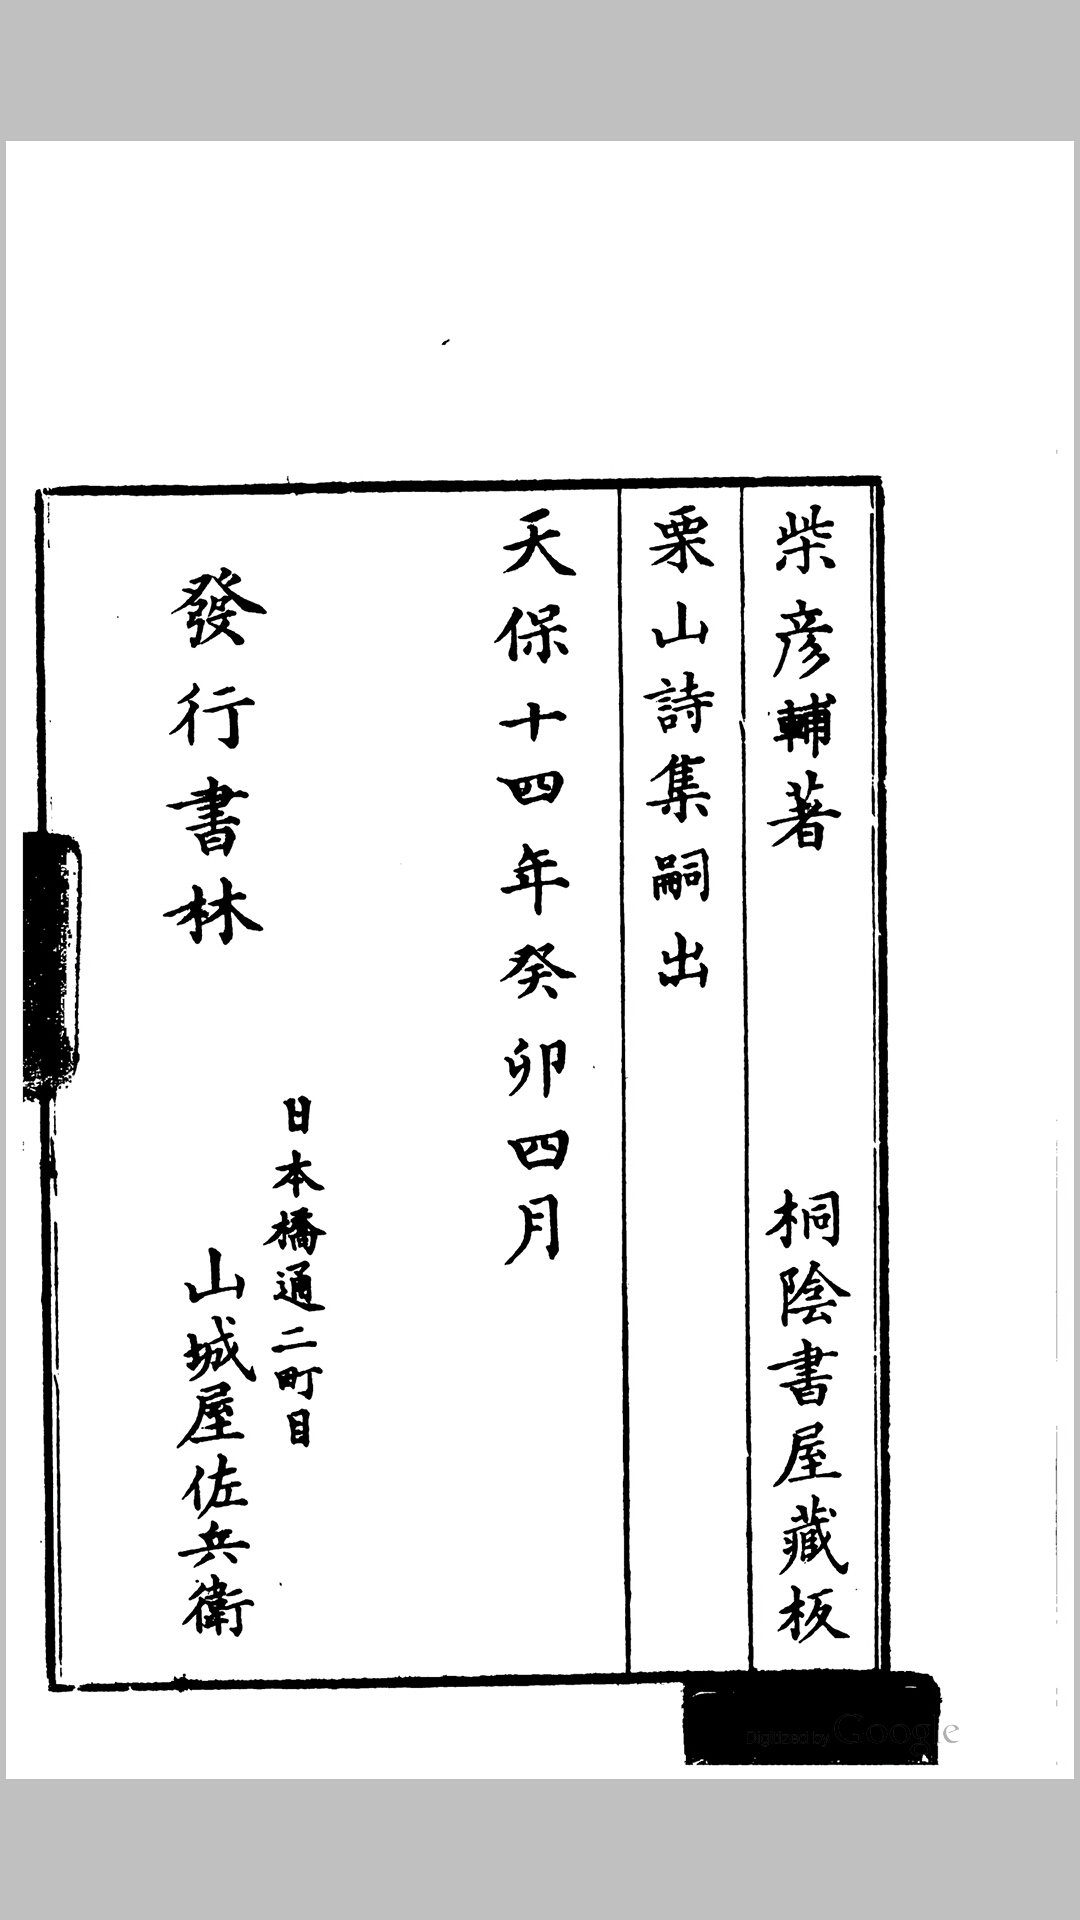 柴彦輔著　桐陰書屋藏板
栗山詩集嗣出
天保十四年癸卯四月
發行書林
日本橋通二町目
山城屋佐兵衛
Digitized by Google